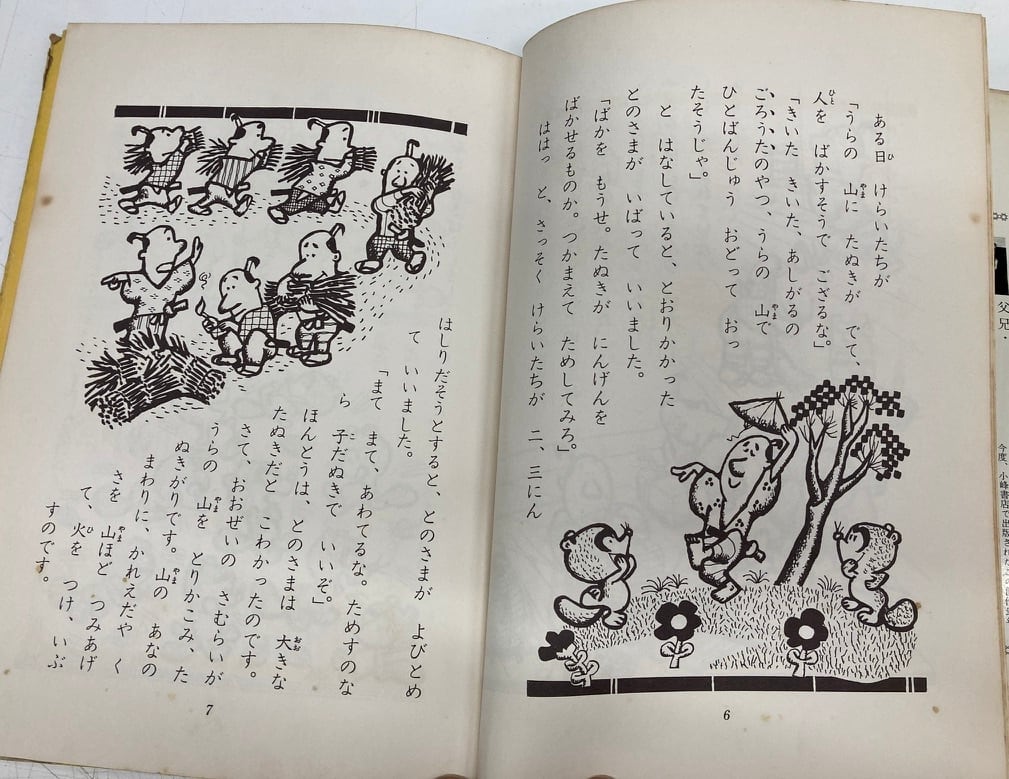 ある日 けらいたちが
「うらの 山に たぬきが でて、
人を ばかすそうで ござるな。」
「きいた きいた、あしがるの
ごろうたのやつ、うらの 山で
ひとばんじゅう おどって おっ
たそうじゃ。」
と はなしていると、とおりかかった
とのさまが いばって いいました。
「ばかを もうせ。たぬきが にんげんを
ばかせるものか。つかまえて ためしてみろ。」
ははっ と、さっそく けらいたちが 二、三にん
6
はしりだそうとすると、とのさまが よびとめ
て いいました。
「まて まて、あわてるな。ためすのな
ら 子だぬきで いいぞ。」
ほんとうは、とのさまは 大きな
たぬきだと こわかったのです。
さて、おおぜいの さむらいが
うらの 山を とりかこみ、た
ぬきがりです。山の あなの
まわりに、かれえだや く
さを 山ほど つみあげ
て、火を つけ、いぶ
すのです。
7
父兄・
今度、小峰書店で出版された